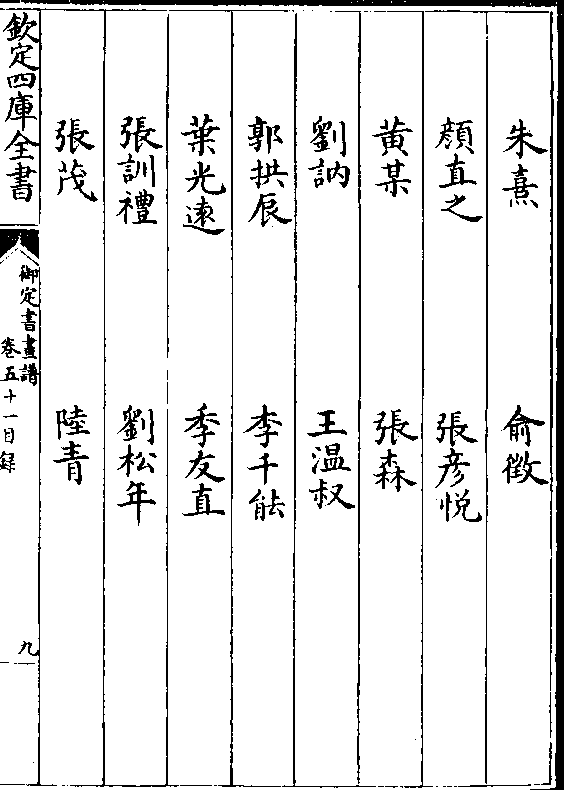 朱熹　俞徵
顔直之　張彦悦
黄某　張森
劉訥　王温叔
郭拱辰　李千能
葉光遠　季友直
張訓禮　劉松年
張茂　陸青
欽定四庫全書
御定書畫譜
卷五十一目録
九